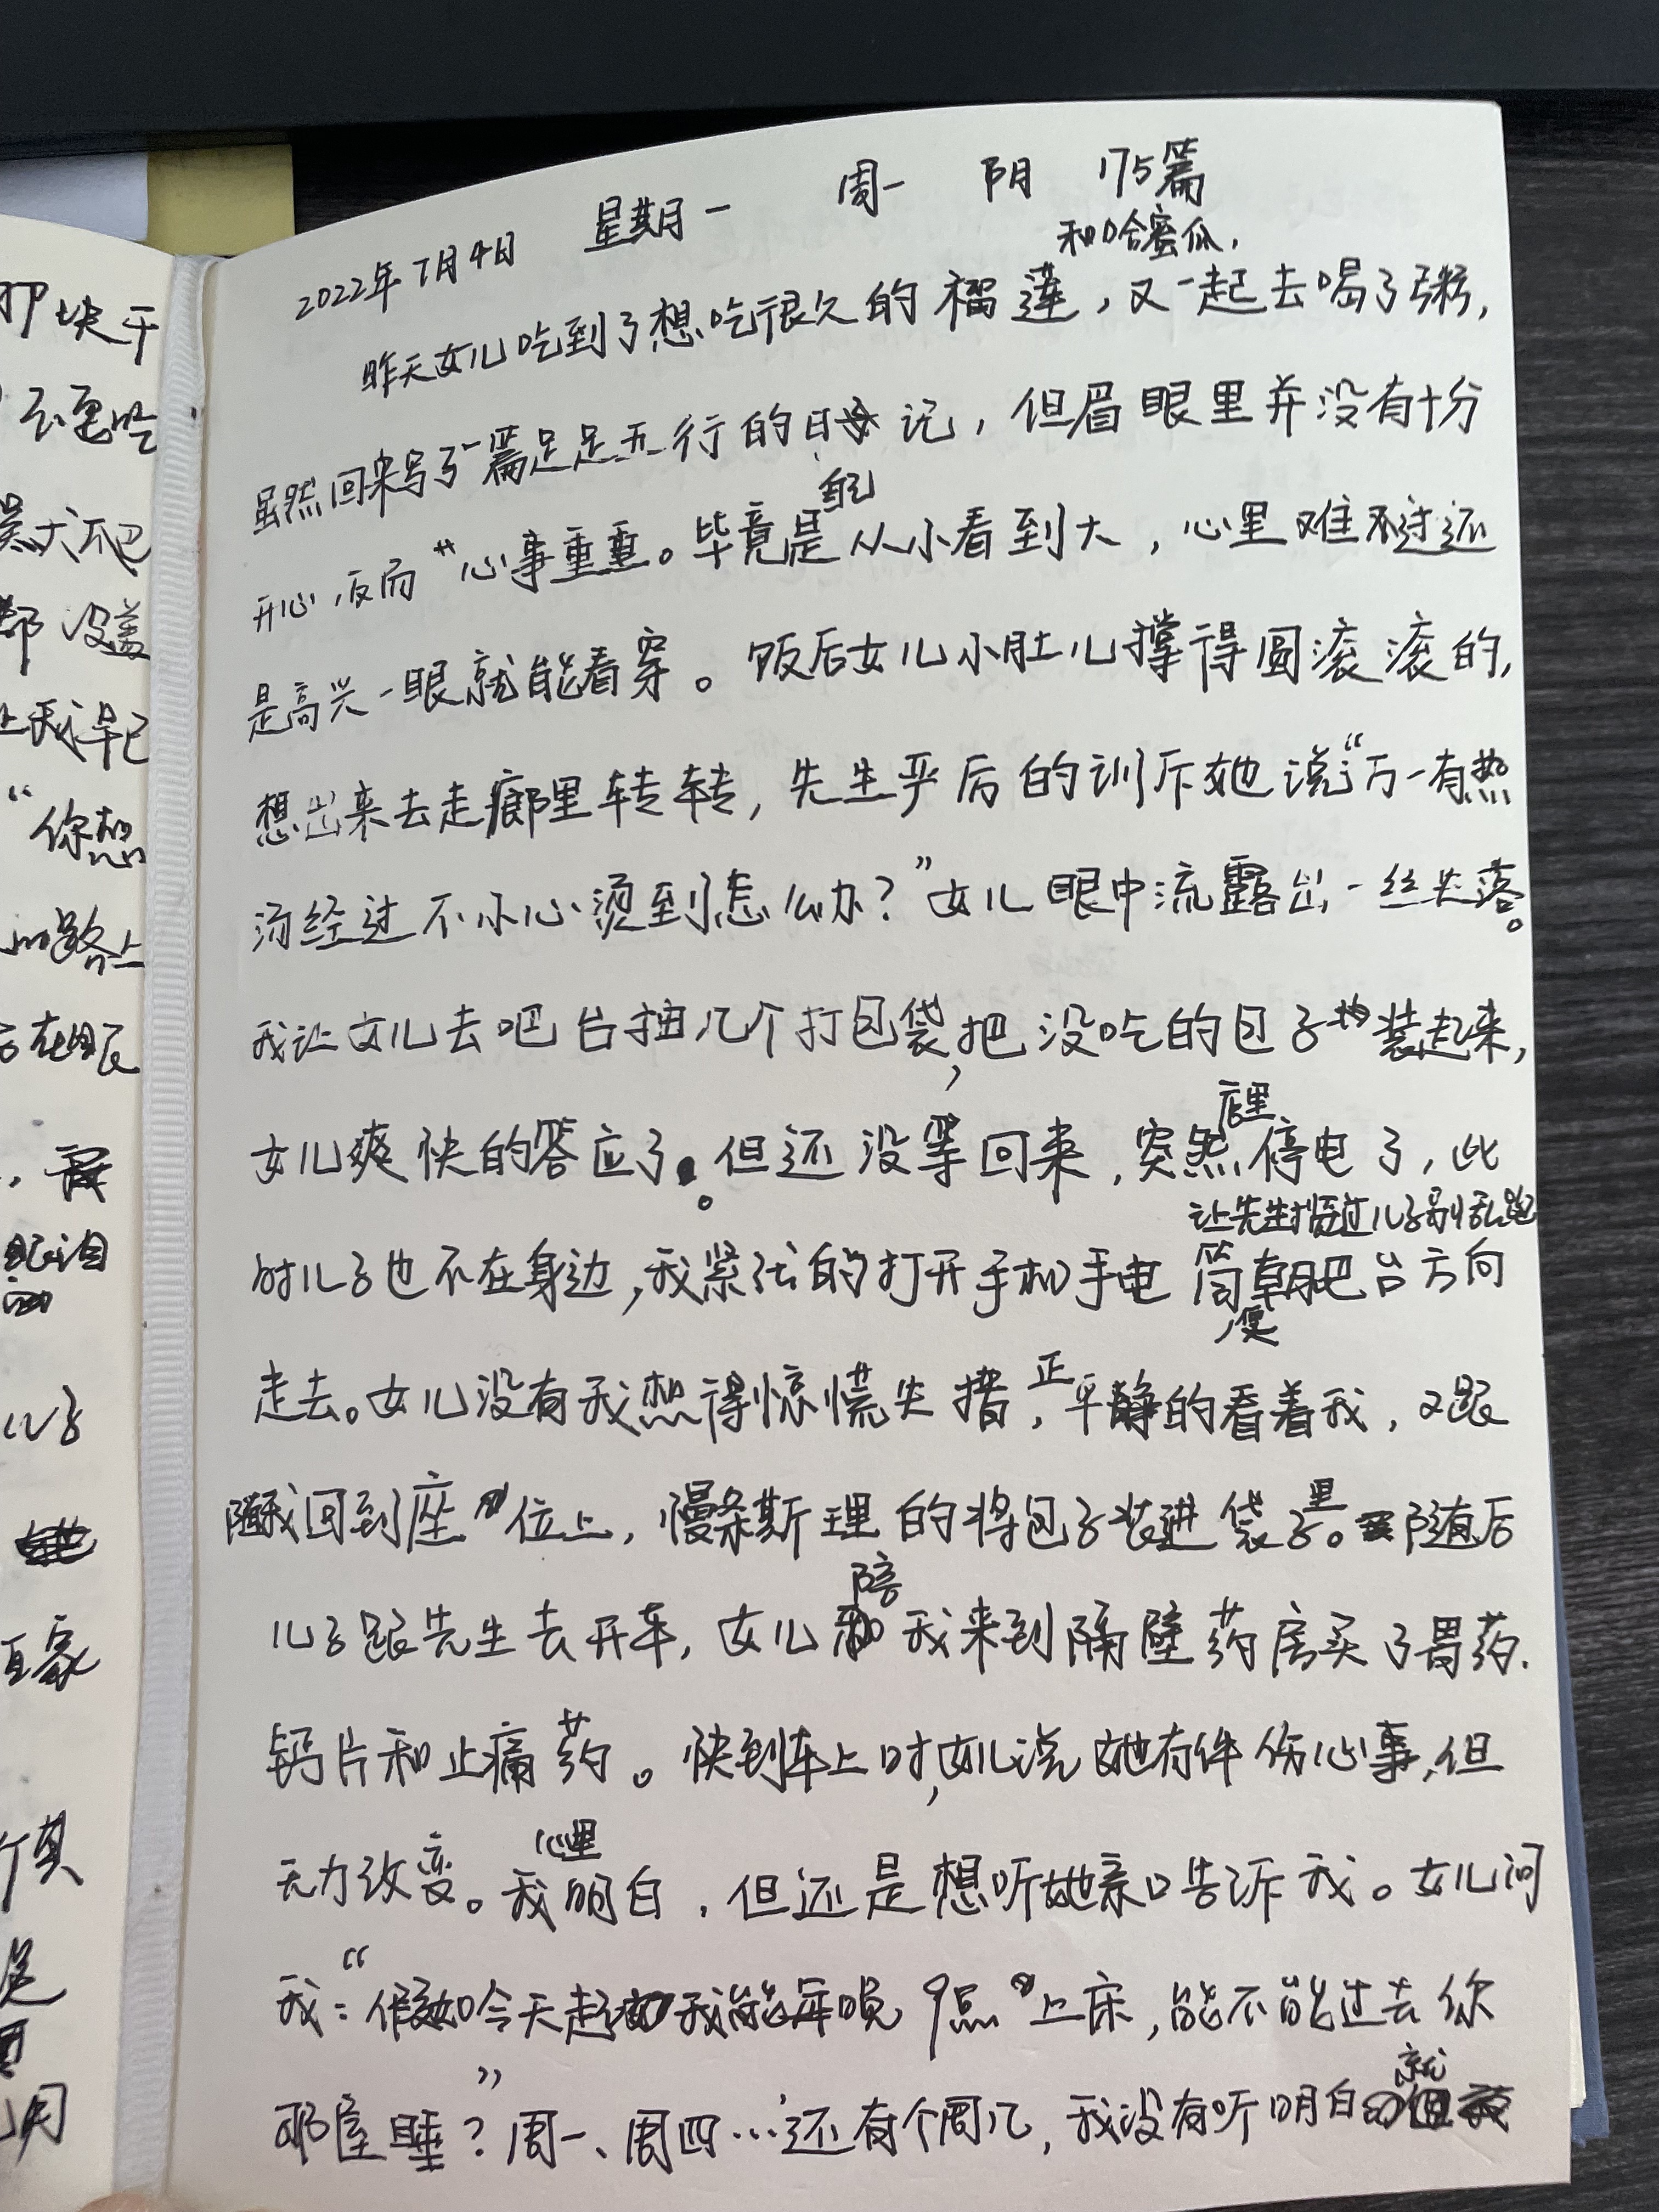 2022年7月4日 星期一 周一 阴 175篇
和哈蜜瓜,
昨天女儿吃到了想吃很久的榴莲,又一起去喝了粥,
虽然回来写了一篇足足五行的日记,但眉眼里并没有十分
自己
开心,反而“心事重重。毕竟是从小看到大,心里难不过还
是高兴一眼就能看穿。饭后女儿小肚儿撑得圆滚滚的,
想出来去走廊里转转,先生严厉的训斥她说“万一有热
汤经过不小心烫到怎么办?”女儿眼中流露出一丝失落。
我让女儿去吧台抽几个打包袋,把没吃的包子装起来,
店里
女儿爽快的答应了。但还没等回来,突然停电了,此
让先生找过儿子别乱跑
时儿子也不在身边,我紧张的打开手机手电筒朝吧台方向
便
走去。女儿没有我想得惊慌失措,正平静的看着我,又跟
随我回到座位上,慢条斯理的将包子装进袋子里。随后
陪
儿子跟先生去开车,女儿我来到隔壁药房买了胃药.
钙片和止痛药。快到车上时,女儿说她有件伤心事,但
心里
无力改变。我明白,但还是想听她亲口告诉我。女儿问
我:“假如今天起我能早晚9点上床,能不能过去你
就
那屋睡?”周一、周四…还有个周几,我没有听明白
干
“你想
在眼
儿子